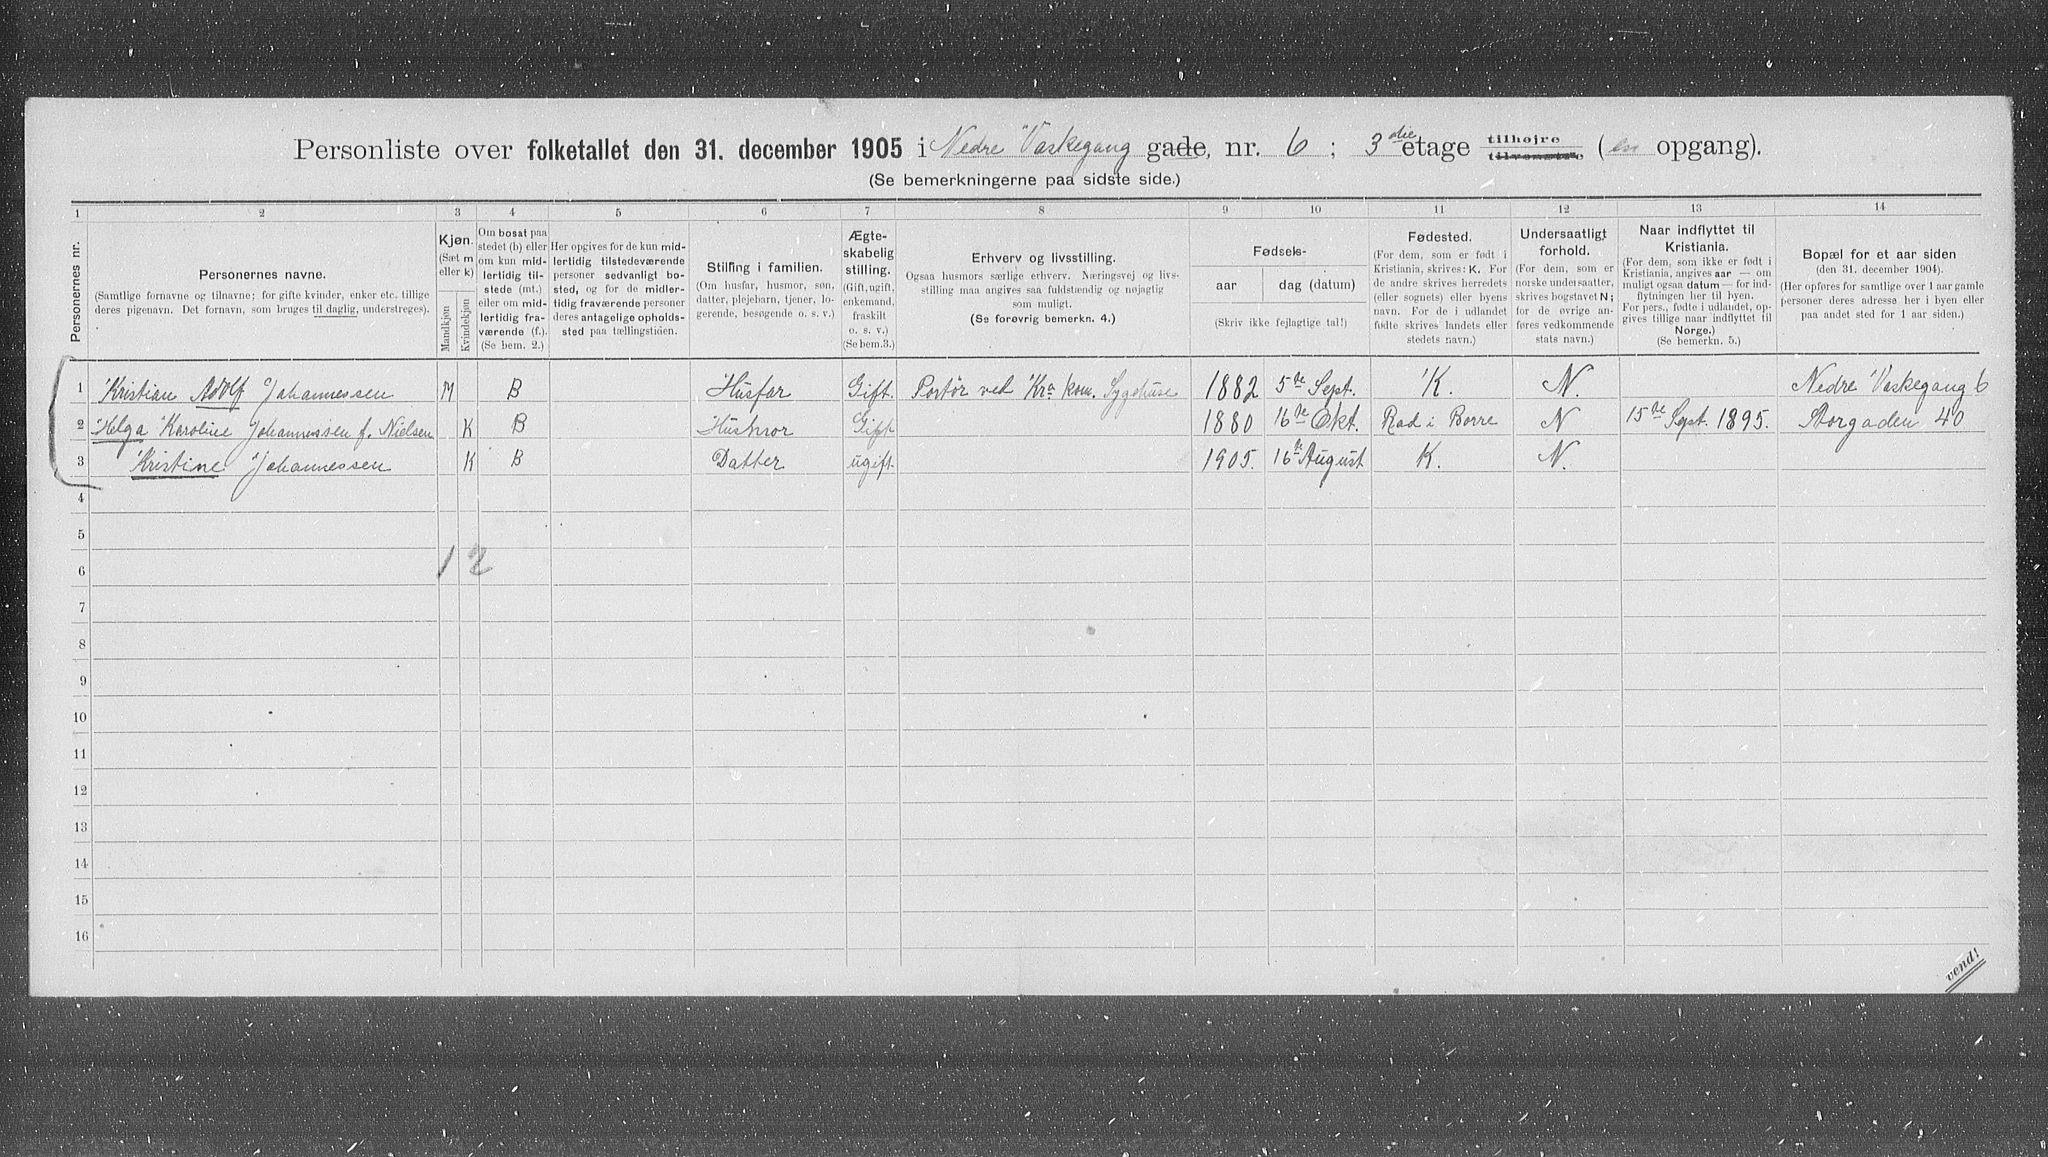 Personliste over folketallet den 31. december 1905 i Nedre Vaskegang gade, nr. 6 ; 3die etage tilhøjre tilvenstre (en opgang).
(Se bemerkningerne paa sidste side.)
1 2 3 4 5 6 7 8 9 10 11 12 13 14
Personernes nr.
Personernes navne.
(Samtlige fornavne og tilnavne; for gifte kvinder, enker etc. tillige
deres pigenavn. Det fornavn, som bruges til daglig, understreges).
Kjøn.
(Sæt m
eller k)
Mandkjøn
Kvindekjøn
Om bosat paa
stedet (b) eller
om kun mid-
lertidig til-
stede (mt.)
eller om mid-
lertidig fra-
værende (f.).
(Se bem. 2.)
Her opgives for de kun mid-
lertidig tilstedeværende
personer sedvanligt bo-
sted, og for de midler-
tidig fraværende personer
deres antagelige opholds-
sted paa tællingstiden.
Stilling i familien.
(Om husfar, husmor, søn,
datter, plejebarn, tjener, lo-
gerende, besøgende o. s. v.)
Ægte-
skabelig
stilling.
(Gift, ugift,
enkemand,
fraskilt
o. s. v.)
(Se bem.3.)
Erhverv og livsstilling.
Ogsaa husmors særlige erhverv. Næringsvej og livs-
stilling maa angives saa fuldstændig og nøjagtig
som muligt.
(Se forøvrig bemerkn. 4.)
Fødsels-
aar dag (datum)
(Skriv ikke fejlagtige tal!)
Fødested.
(For dem, som er født i
Kristiania, skrives: K. For
de andre skrives herredets
(eller sognets) eller byens
navn. For de i udlandet
fødte skrives landets eller
stedets navn.)
Undersaatligt
forhold.
(For dem, som er
norske undersaatter,
skrives bogstavet N;
for de øvrige an-
føres vedkommende
stats navn.)
Naar indflyttet til
Kristiania.
(For dem, som ikke er født i
Kristiania, angives aar — om
muligt ogsaa datum — for ind-
flytningen her til byen.
For pers., fødte i udlandet, op-
gives tillige naar indflyttet til
Norge.)
(Se bemerkn. 5.)
Bopæl for et aar siden
(den 31. december 1904).
(Her opføres for samtlige over 1 aar gamle
personer deres adresse her i byen eller
paa andet sted for 1 aar siden.)
1 Kristian Adolf Johannessen M B Husfar Gift. Portør ved Kra kom. Sygehuse 1882 5te Sept. K. N. Nedre Vaskegang 6
2 Helga Karoline Johannessen f. Nielsen K B Husmor Gift 1880 16de Okt. Rød i Borre N 15de Sept. 1895. Storgaden 40
3 Kristine Johannessen K B Datter ugift. 1905. 16de August K. N.
4
5
1 2
6
7
8
9
10
11
12
13
14
15
16
vend!